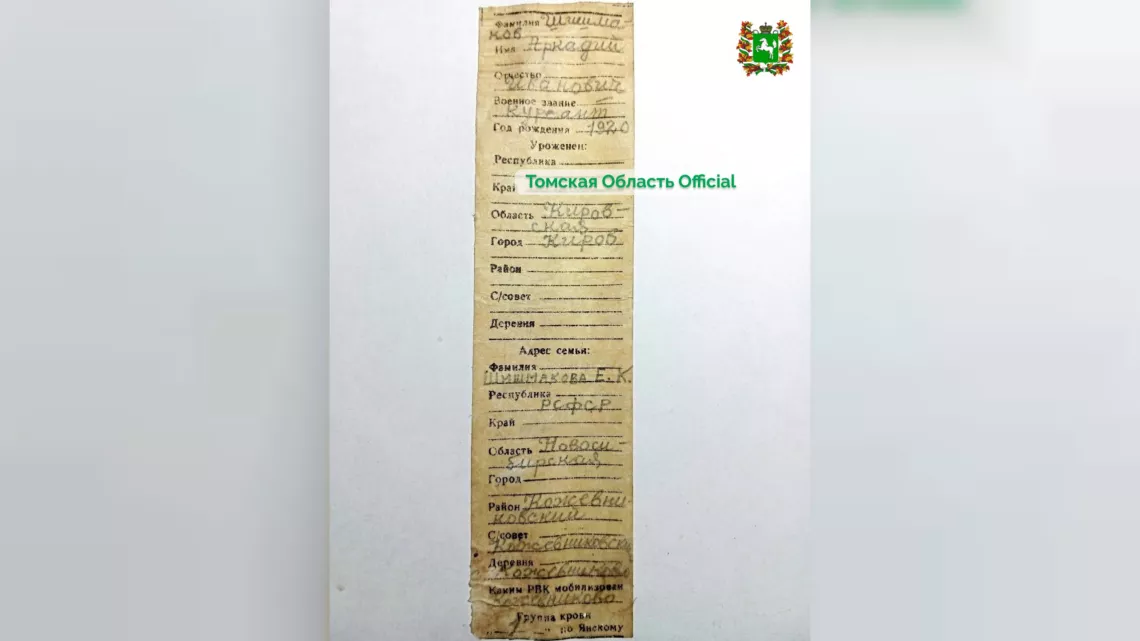 Фамилия Шишма-
ков
Имя Аркадий
Отчество
Иванович
Военное звание
курсант
Год рождения 1920
Уроженец:
Республика
Томская Область Official
Край
Область Киров-
ская
Город Киров
Район
С/совет
Деревня
Адрес семьи:
Фамилия
Шишмакова Е. К.
Республика
РСФСР
Край
Область Новоси-
бирская
Город
Район Кожевни-
ковский
С/совет
Кожевниковский
Деревня
Кожевниково
Каким РВК мобилизован
Кожевниково
Группа крови
" " по Янскому